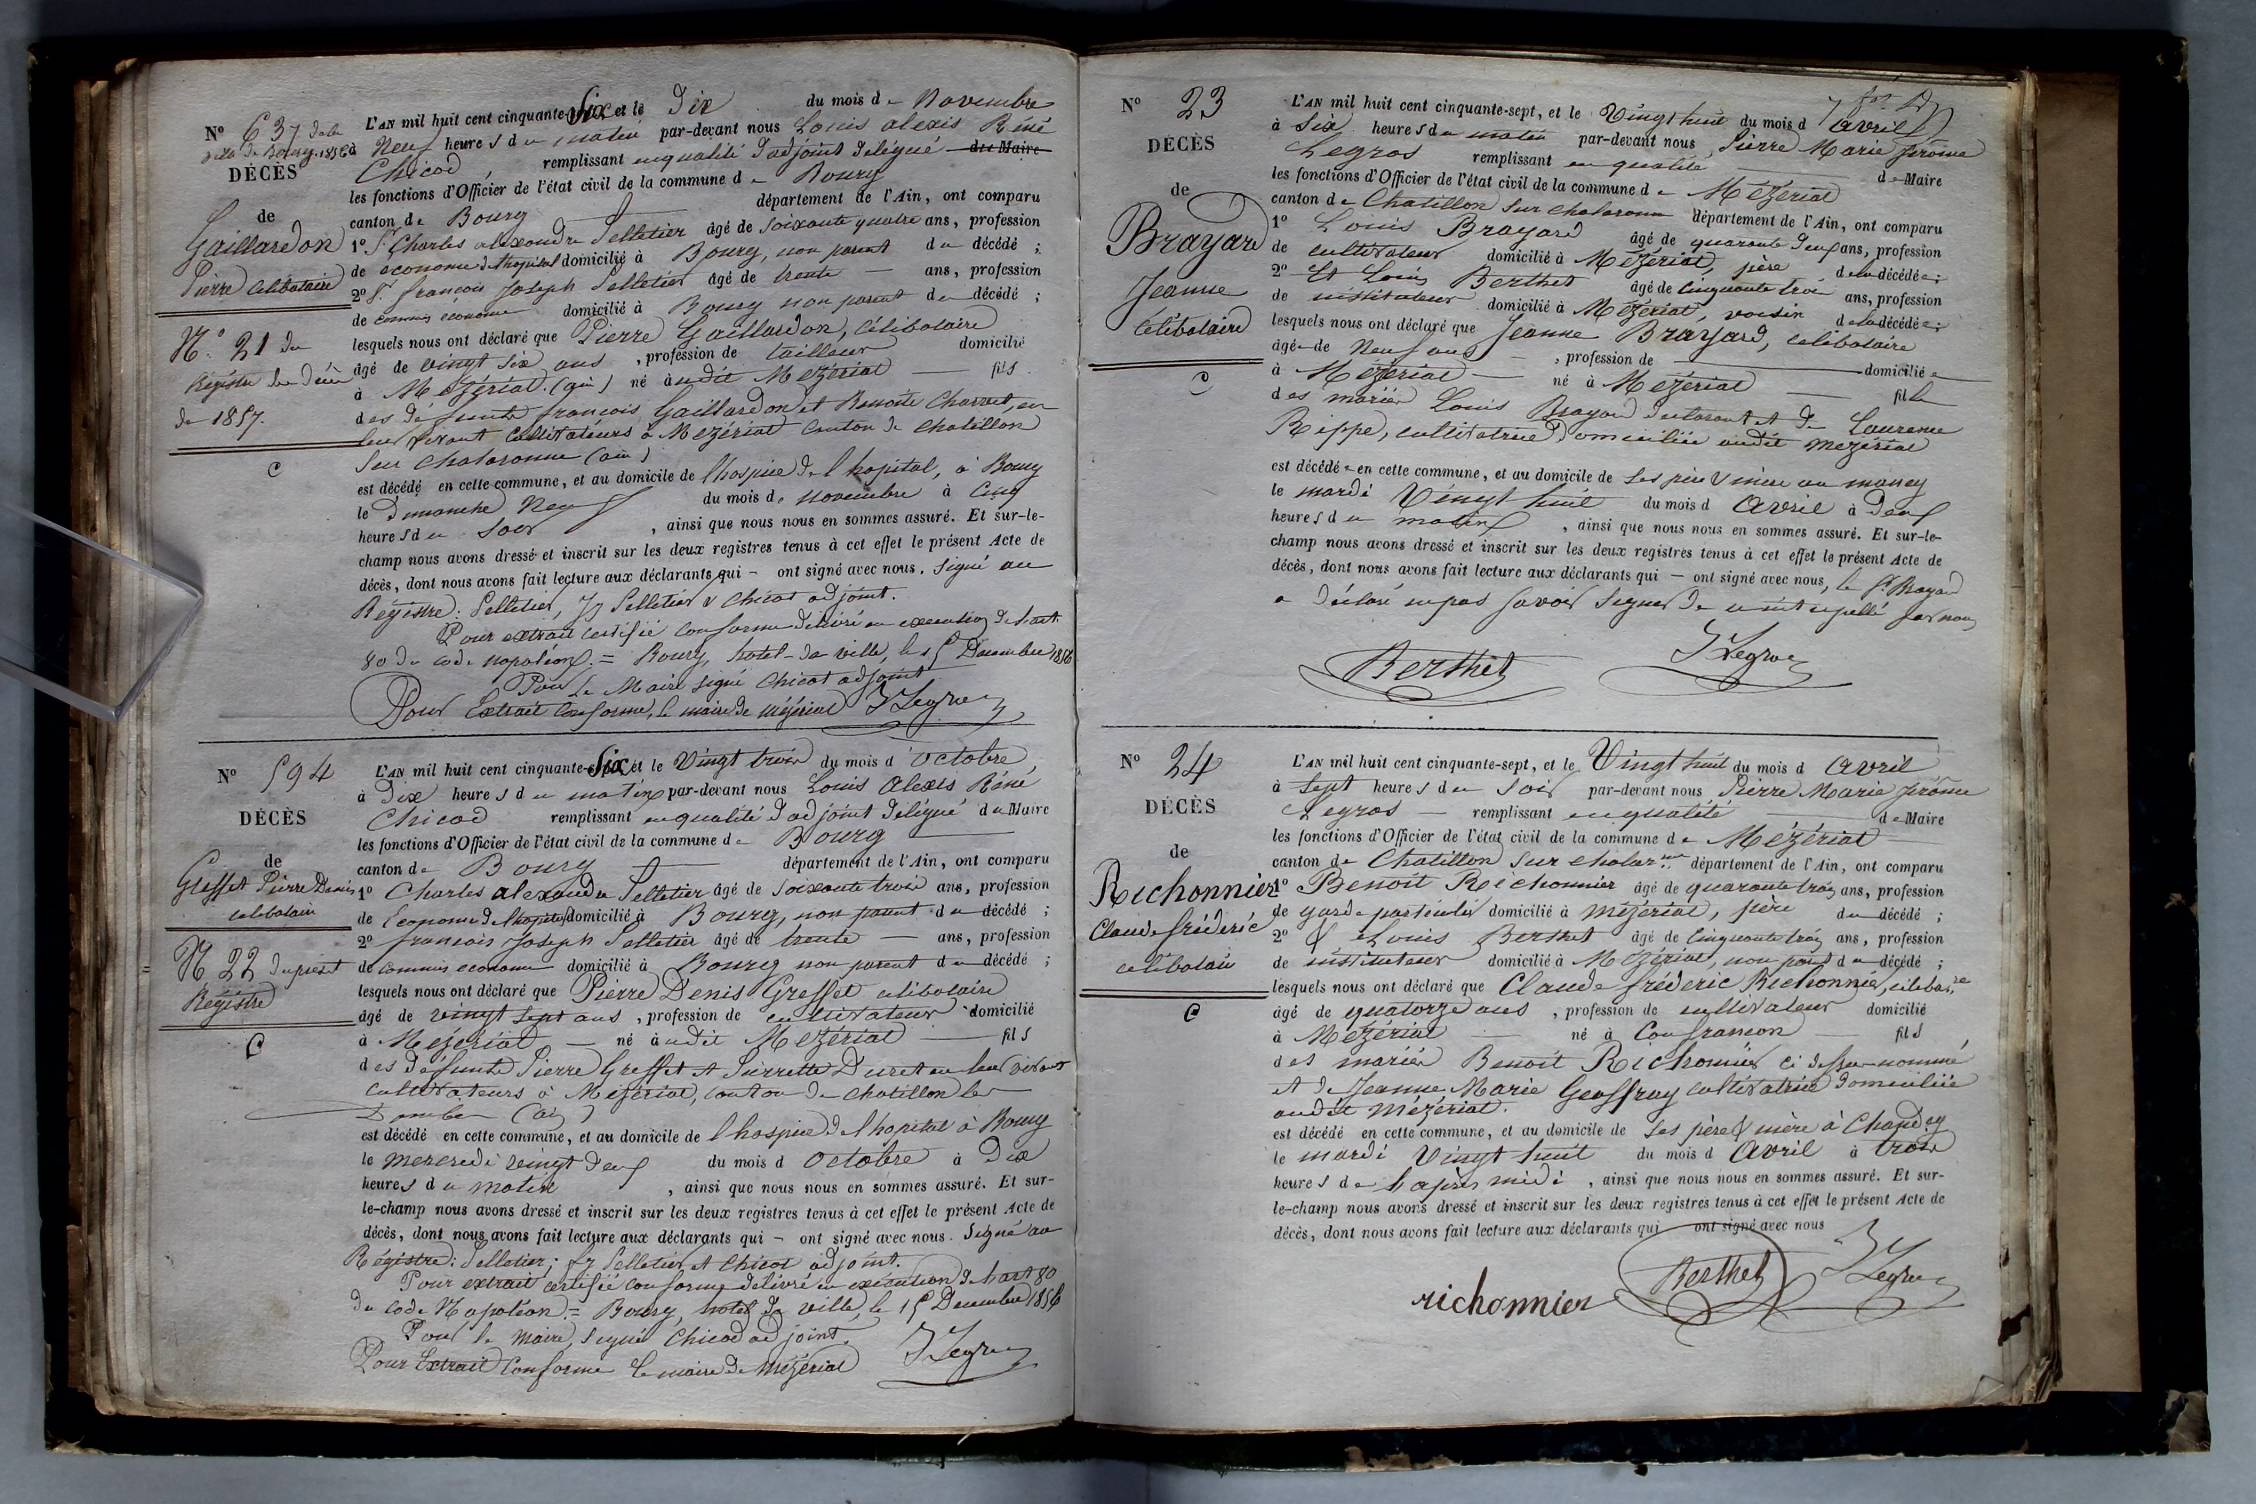 N° 637 de la
ville de Bourg. 1856
DÉCÈS
de
Gaillardon
Pierre célibataire
N° 21 du
Régistre de Décès
de 1857.
C
L'AN mil huit cent cinquante-Six et le Dix du mois de Novembre
à Neuf heures du matin par-devant nous Louis Alexis Réné
Chicod, remplissant en qualité d'adjoint délégué du Maire
les fonctions d'Officier de l'état civil de la commune de Bourg
canton de Bourg département de l'Ain, ont comparu
1° Sr Charles alexandre Pelletier âgé de soixante quatre ans, profession
de économe de l'hopital domicilié à Bourg, non parent du décédé ;
2° Sr françois Joseph Pelletier âgé de trente — ans, profession
de commis économe domicilié à Bourg non parent du décédé ;
lesquels nous ont déclaré que Pierre Gaillardon, célibataire
âgé de vingt six ans, profession de tailleur domicilié
à Mézériat (ain) né audit Mézériat — fils
des défunts françois Gaillardon et Benoite Charvet, en
leur vivant cultivateurs à Mézériat canton de Chatillon
sur Chalaronne (ain)
est décédé en cette commune, et au domicile de l'hospice de l'hopital, à Bourg
le Dimanche Neuf du mois de novembre à Cinq
heures du Soir, ainsi que nous nous en sommes assuré. Et sur-le-
champ nous avons dressé et inscrit sur les deux registres tenus à cet effet le présent Acte de
décès, dont nous avons fait lecture aux déclarants qui — ont signé avec nous. Signé au
Régistre : Pelletier, Pelletier & Chicod adjoint.
Pour extrait certifié conforme délivré en execution de l'art.
80 du code napoléon. = Bourg, hotel-de ville, le 15 Décembre 1856
Pour le Maire signé Chicod adjoint
Pour Extrait Conforme, le maire de Mézériat JLegros
N° 594
DÉCÈS
de
Greffet Pierre Denis
célibataire
N 22 du présent
Régistre
C
L'AN mil huit cent cinquante-Six et le Vingt trois du mois d'octobre
à Dix heures du matin par-devant nous Louis Alexis Réné
Chicod remplissant en qualité d'adjoint délégué du Maire
les fonctions d'Officier de l'état civil de la commune de Bourg
canton de Bourg département de l'Ain, ont comparu
1° Charles alexandre Pelletier âgé de soixante trois ans, profession
de Econome de l'hopital domicilié à Bourg, non parent du décédé ;
2° françois Joseph Pelletier âgé de trente — ans, profession
de commis econome domicilié à Bourg non parent du décédé ;
lesquels nous ont déclaré que Pierre Denis Greffet célibataire
âgé de vingt sept ans, profession de cultivateur domicilié
à Mézériat — né audit Mézériat — fils
des défunts Pierre Greffet et Pierrette Duret en leur vivant
cultivateurs à Mézériat, canton de Chatillon les
Dombes (ain)
est décédé en cette commune, et au domicile de l'hospice de l'hopital à Bourg
le mercredi vingt deux du mois d octobre à Dix
heures du matin, ainsi que nous nous en sommes assuré. Et sur-
le-champ nous avons dressé et inscrit sur les deux registres tenus à cet effet le présent Acte de
décès, dont nous avons fait lecture aux déclarants qui — ont signé avec nous. Signé au
Régistre : Pelletier ; Pelletier et Chicod adjoint.
Pour extrait certifié conforme délivré en exécution de l'art 80
du code Napoléon = Bourg, hotel de ville, le 15 Décembre 1856
Pour le maire, signé Chicod adjoint.
Pour Extrait Conforme le maire de Mézériat JLegros
N° 23
DÉCÈS
de
Brayard
Jeanne
célibataire
C
L'AN mil huit cent cinquante-sept, et le Vingt huit du mois d avril
à Six heures du matin par-devant nous Pierre Marie Jérôme
Legros remplissant en qualité de Maire
les fonctions d'Officier de l'état civil de la commune de Mézériat
canton de Chatillon sur Chalaronne département de l'Ain, ont comparu
1° Louis Brayard âgé de quarante deux ans, profession
de cultivateur domicilié à Mézériat, père de la décédée ;
2° Et Louis Berthet âgé de cinquante trois ans, profession
de instituteur domicilié à Mézériat, voisin de la décédée ;
lesquels nous ont déclaré que Jeanne Brayard, célibataire
âgée de Neuf ans —, profession de — domiciliée
à Mézériat — né à Mézériat — fille
des mariés Louis Brayard déclarant et de Laurence
Rippe, cultivatrice domiciliée audit Mézériat
est décédée en cette commune, et au domicile de ses père & mère au maney
le mardi Vingt huit du mois d Avril à Deux
heures du matin, ainsi que nous nous en sommes assuré. Et sur-le-
champ nous avons dressé et inscrit sur les deux registres tenus à cet effet le présent Acte de
décès, dont nous avons fait lecture aux déclarants qui — ont signé avec nous, le Sr Brayard
a déclaré ne pas savoir signer de ce interpellé par nous
Berthet JLegros
N° 24
DÉCÈS
de
Richonnier
Claude frédéric
célibataire
C
L'AN mil huit cent cinquante-sept, et le Vingt huit du mois d avril
à Sept heures du Soir par-devant nous Pierre Marie Jérôme
Legros — remplissant en qualité de Maire
les fonctions d'Officier de l'état civil de la commune de Mézériat
canton de Chatillon sur chalar.nne département de l'Ain, ont comparu
1° Benoit Richonnier âgé de quarante trois ans, profession
de garde particulier domicilié à mézériat, père du décédé ;
2° & Louis Berthet âgé de cinquante trois ans, profession
de instituteur domicilié à Mézériat, non parent du décédé ;
lesquels nous ont déclaré que Claude frédéric Richonnier, céliba.re
âgé de quatorze ans, profession de cultivateur domicilié
à Mézériat — né à Confrançon — fils
des mariés Benoit Richonnier ci dessus nommé
et de Jeanne Marie Geoffray cultivatrice domiciliée
audit Mézériat.
est décédé en cette commune, et au domicile de ses père & mère à Chandey
le mardi Vingt huit du mois d Avril à trois
heures de l'après midi, ainsi que nous nous en sommes assuré. Et sur-
le-champ nous avons dressé et inscrit sur les deux registres tenus à cet effet le présent Acte de
décès, dont nous avons fait lecture aux déclarants qui ont signé avec nous
richonnier Berthet JLegros